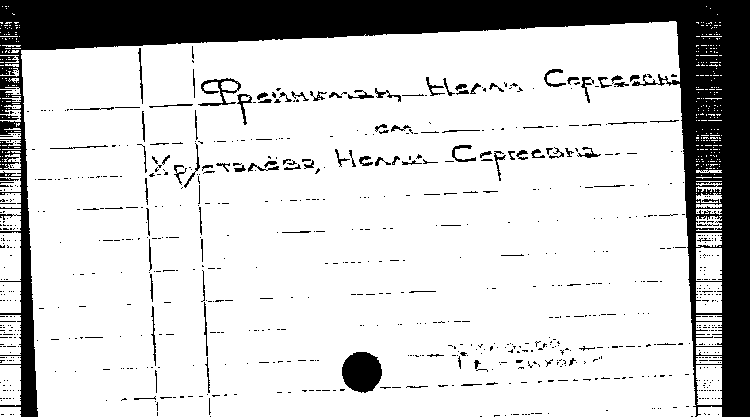 Фрейнкман, Нелли Сергеевна
см
Хрусталёва, Нелли Сергеевна